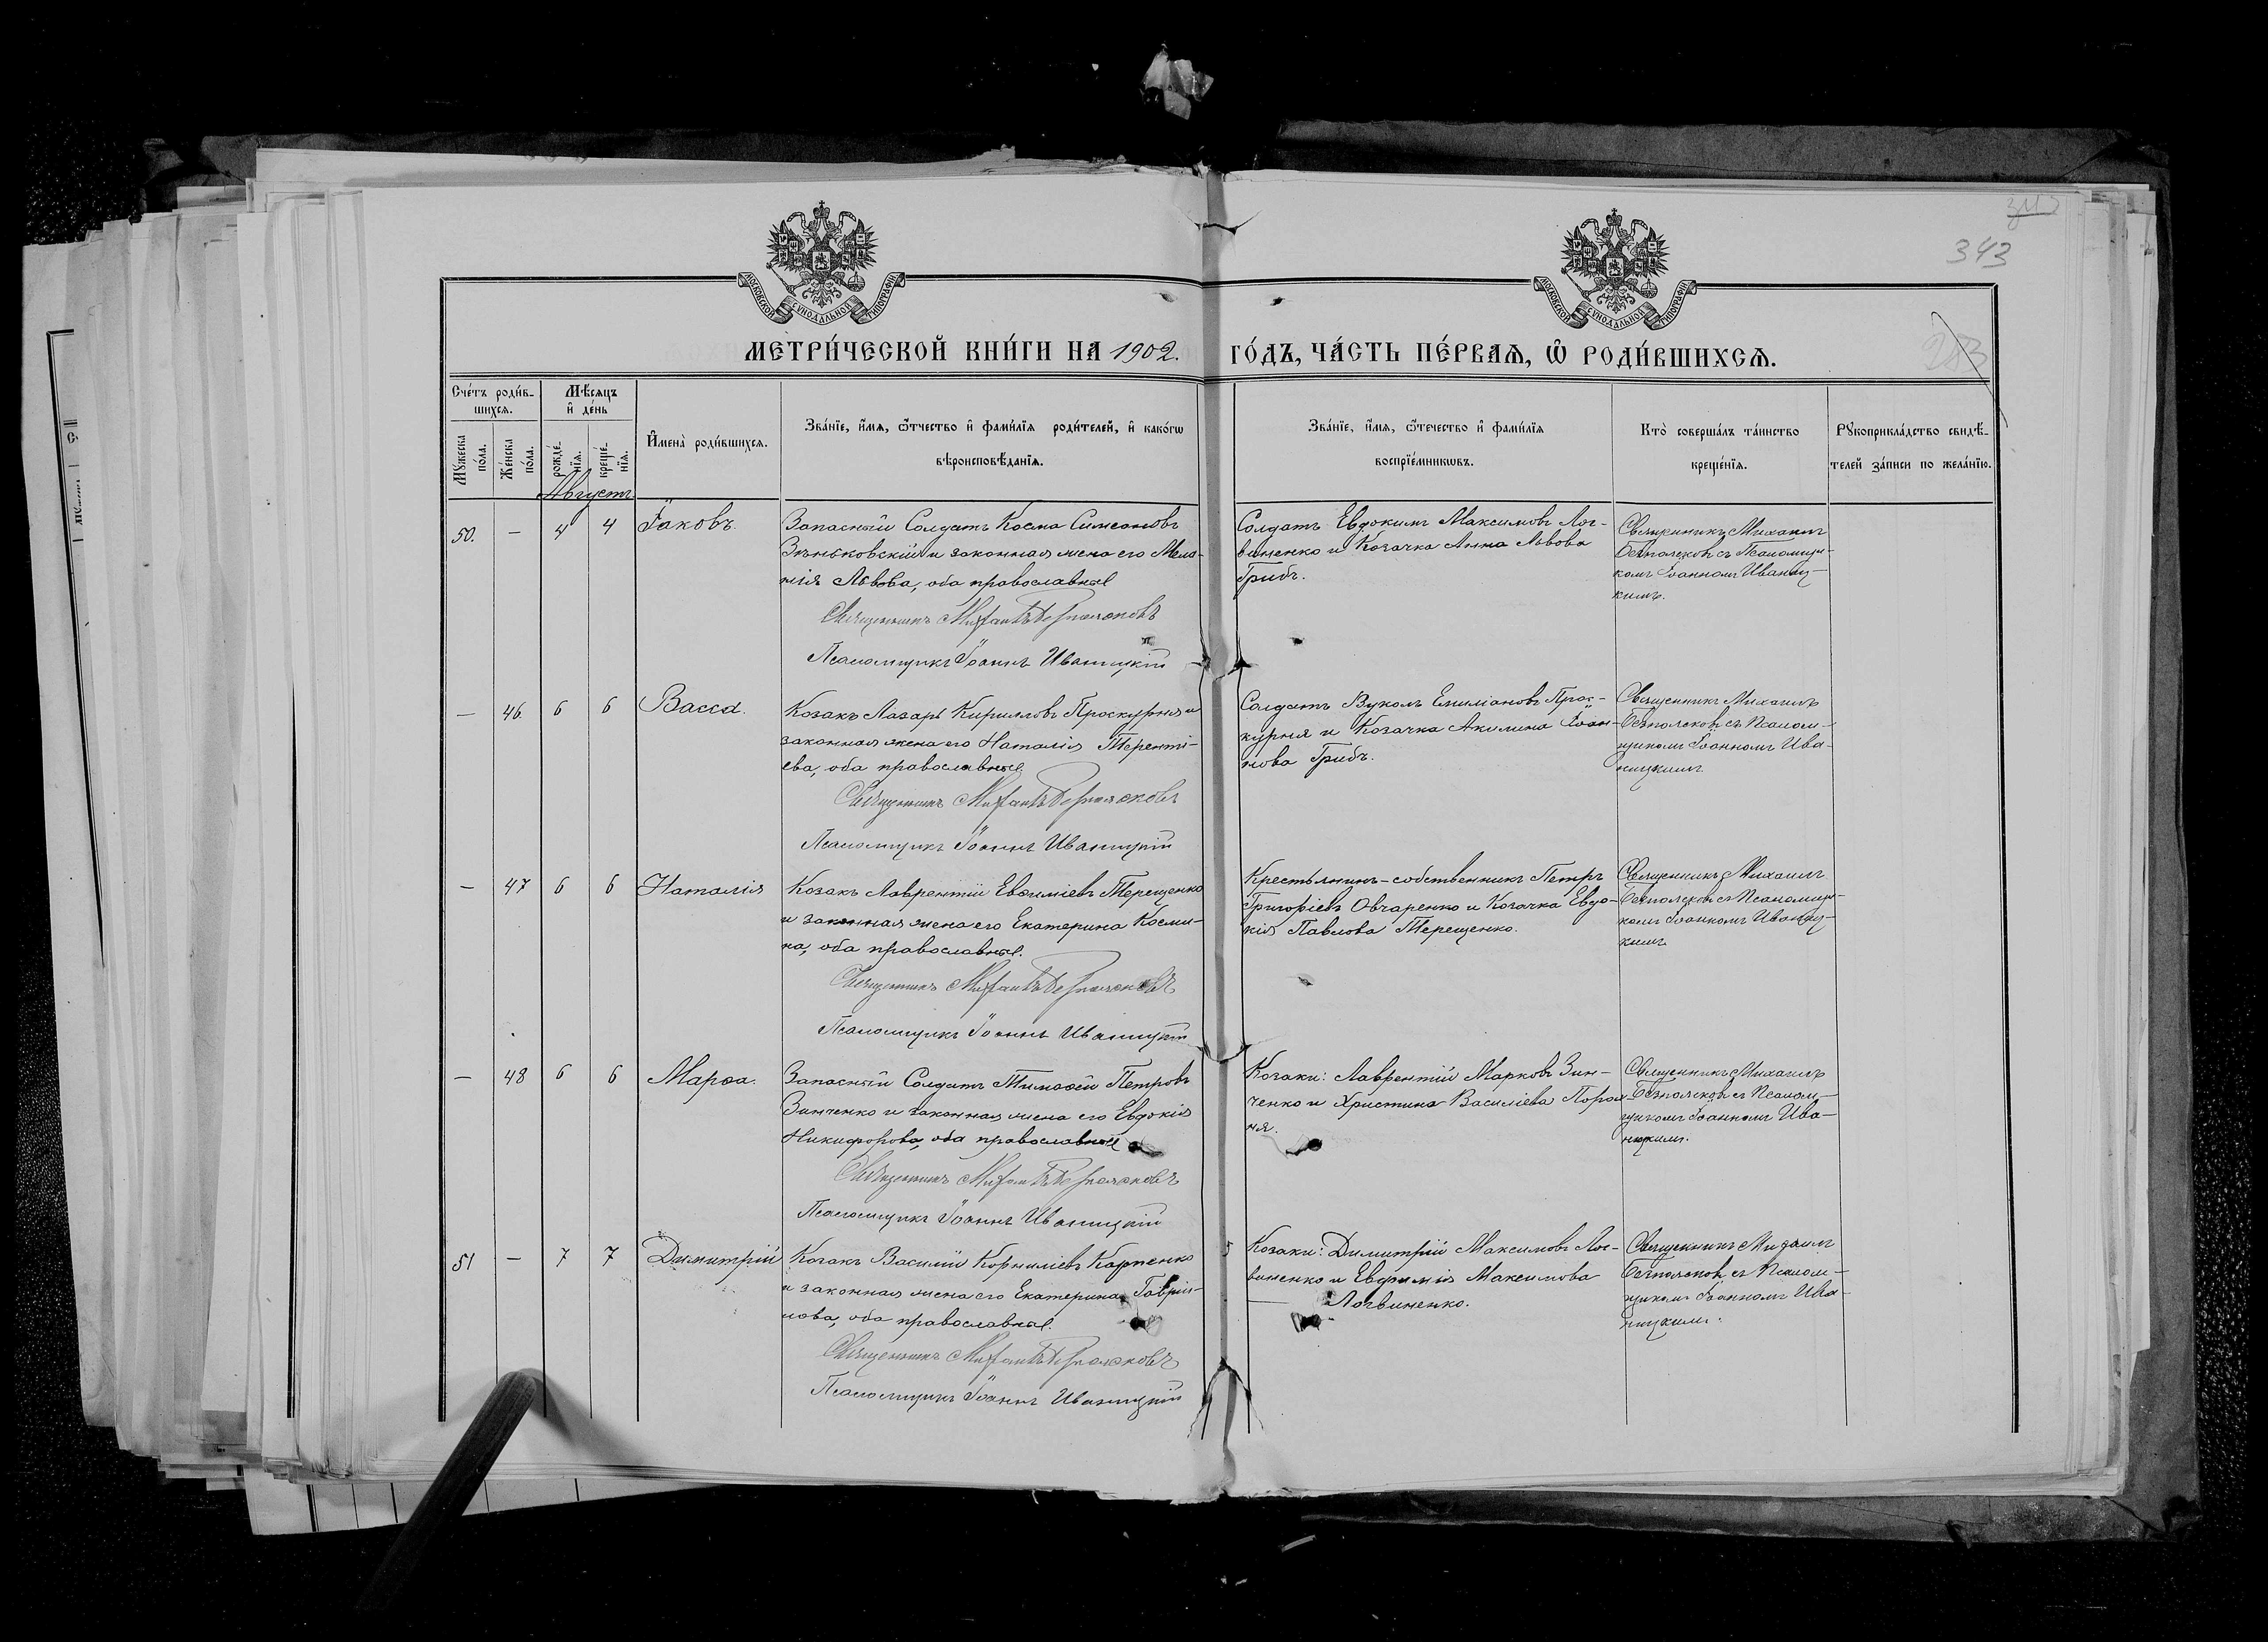 343
МОСКОВСКОЙ СѴНОДАЛЬНОЙ ТИПОГРАФІИ
МОСКОВСКОЙ СѴНОДАЛЬНОЙ ТИПОГРАФІИ
МЕТРИ́ЧЕСКОЙ КНИ́ГИ НА 1902. ГО́ДЪ, ЧА́СТЬ ПЕ́РВАѦ, Ѡ҆ РОДИ́ВШИХСѦ.
Сче́тъ роди́в-
шихсѧ.
Мꙋ́жеска по́ла.
Же́нска по́ла.
Мѣ́сѧцъ
и҆ де́нь
рожде́-
нїѧ.
креще́-
нїѧ.
И҆мена̀ роди́вшихсѧ.
Зва́нїе, и҆́мѧ, ѻ҆́тчество и҆ фами́лїѧ роди́телей, и҆ како́гѡ
вѣроисповѣ́данїѧ.
Зва́нїе, и҆́мѧ, ѻ҆́течество и҆ фами́лїѧ
воспрїе́мникѡвъ.
Кто̀ соверша́лъ та́инство
креще́нїѧ.
Рꙋкоприкла́дство свидѣ́-
телей за́писи по жела́нїю.
Августъ
50. — 4 4 Іаковъ
Запасный Солдатъ Косма Симеоновъ
Зѣньковскій и законная жена его Мела-
нія Львова, оба православные
Священникъ Михаилъ Безпалсковъ
Псаломщикъ Іоаннъ Иваницкій
Солдатъ Евдокимъ Максимовъ Лог-
виненко и Козачка Анна Львова
Грибъ.
Священникъ Михаилъ
съ Псаломщи-
комъ Іоанномъ Иваниц-
кимъ.
— 46. 6 6 Васса.
Козакъ Лазарь Кирилловъ Проскурня и
законная жена его Наталія Теренті-
ева, оба православные
Священникъ Михаилъ
Псаломщикъ Іоаннъ Иваницкій
Солдатъ Вуколъ Емиліановъ Прос-
курня и Козачка Акилина Іоан-
нова Грибъ.
Священникъ Михаилъ
съ Псалом-
щикомъ Іоанномъ Ива-
ницкимъ.
— 47 6 6 Наталія
Козакъ Лаврентій Евѳиміевъ Терещенко
и законная жена его Екатерина Косми-
на, оба православные.
Священникъ Михаилъ
Псаломщикъ Іоаннъ Иваницкій
Крестьянинъ-собственникъ Петръ
Григоріевъ Овчаренко и Козачка Евдо-
кія Павлова Терещенко.
Священникъ Михаилъ
съ Псаломщи-
комъ Іоанномъ Иваниц-
кимъ.
— 48 6 6 Марѳа.
Запасный Солдатъ Тимоѳей Петровъ
Зинченко и законная жена его Евдокія
Никифорова, оба православные
Священникъ Михаилъ
Псаломщикъ Іоаннъ Иваницкій
Козаки: Лаврентій Марковъ Зин-
ченко и Христина Василіева
ня.
Священникъ Михаилъ
съ Псалом-
щикомъ Іоанномъ Ива-
ницкимъ.
51 — 7 7 Димитрій
Козакъ Василій Корниліевъ Карпенко
и законная жена его Екатерина Гаврии-
лова, оба православные.
Священникъ Михаилъ
Псаломщикъ Іоаннъ Иваницкій
Козаки: Димитрій Максимовъ Лог-
виненко и Евфимія Максимова
Логвиненко.
Священникъ Михаилъ
съ Псалом-
щикомъ Іоанномъ Ива-
ницкимъ.